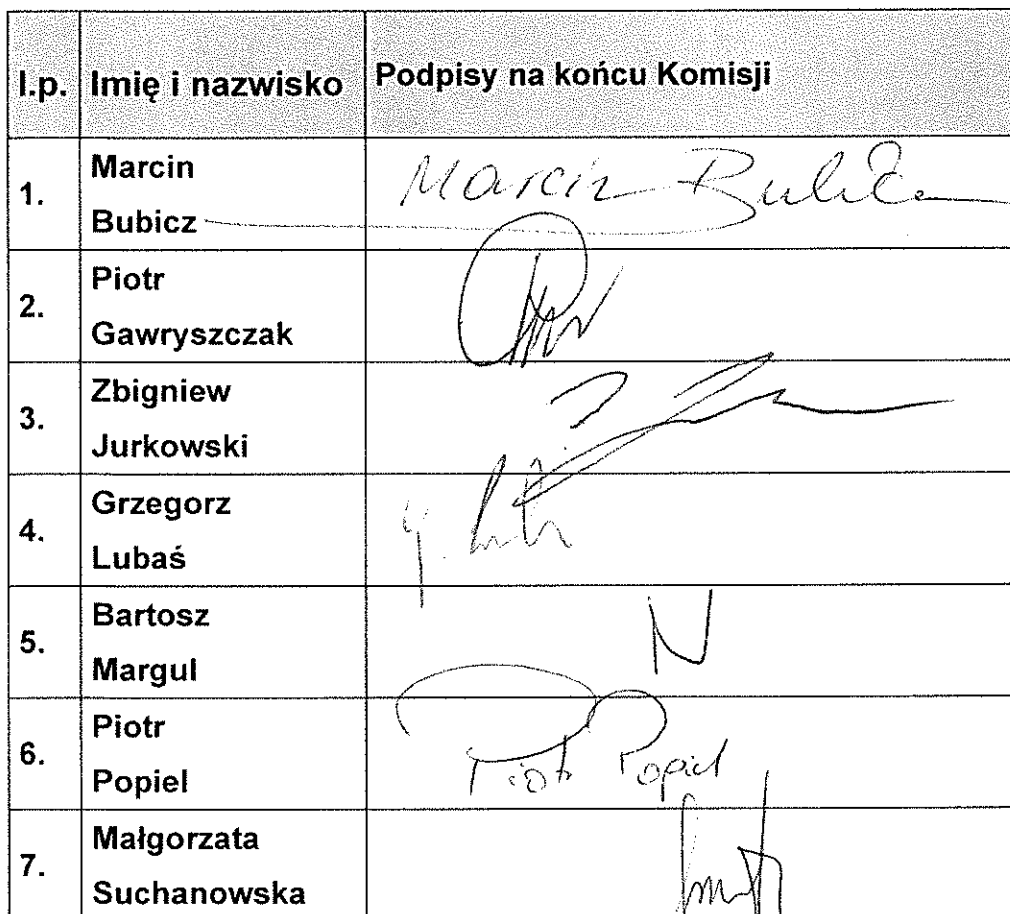 l.p. Imię i nazwisko Podpisy na końcu Komisji
1. Marcin Bubicz Marcin
2. Piotr Gawryszczak
3. Zbigniew Jurkowski
4. Grzegorz Lubaś
5. Bartosz Margul
6. Piotr Popiel Piotr Popiel
7. Małgorzata Suchanowska